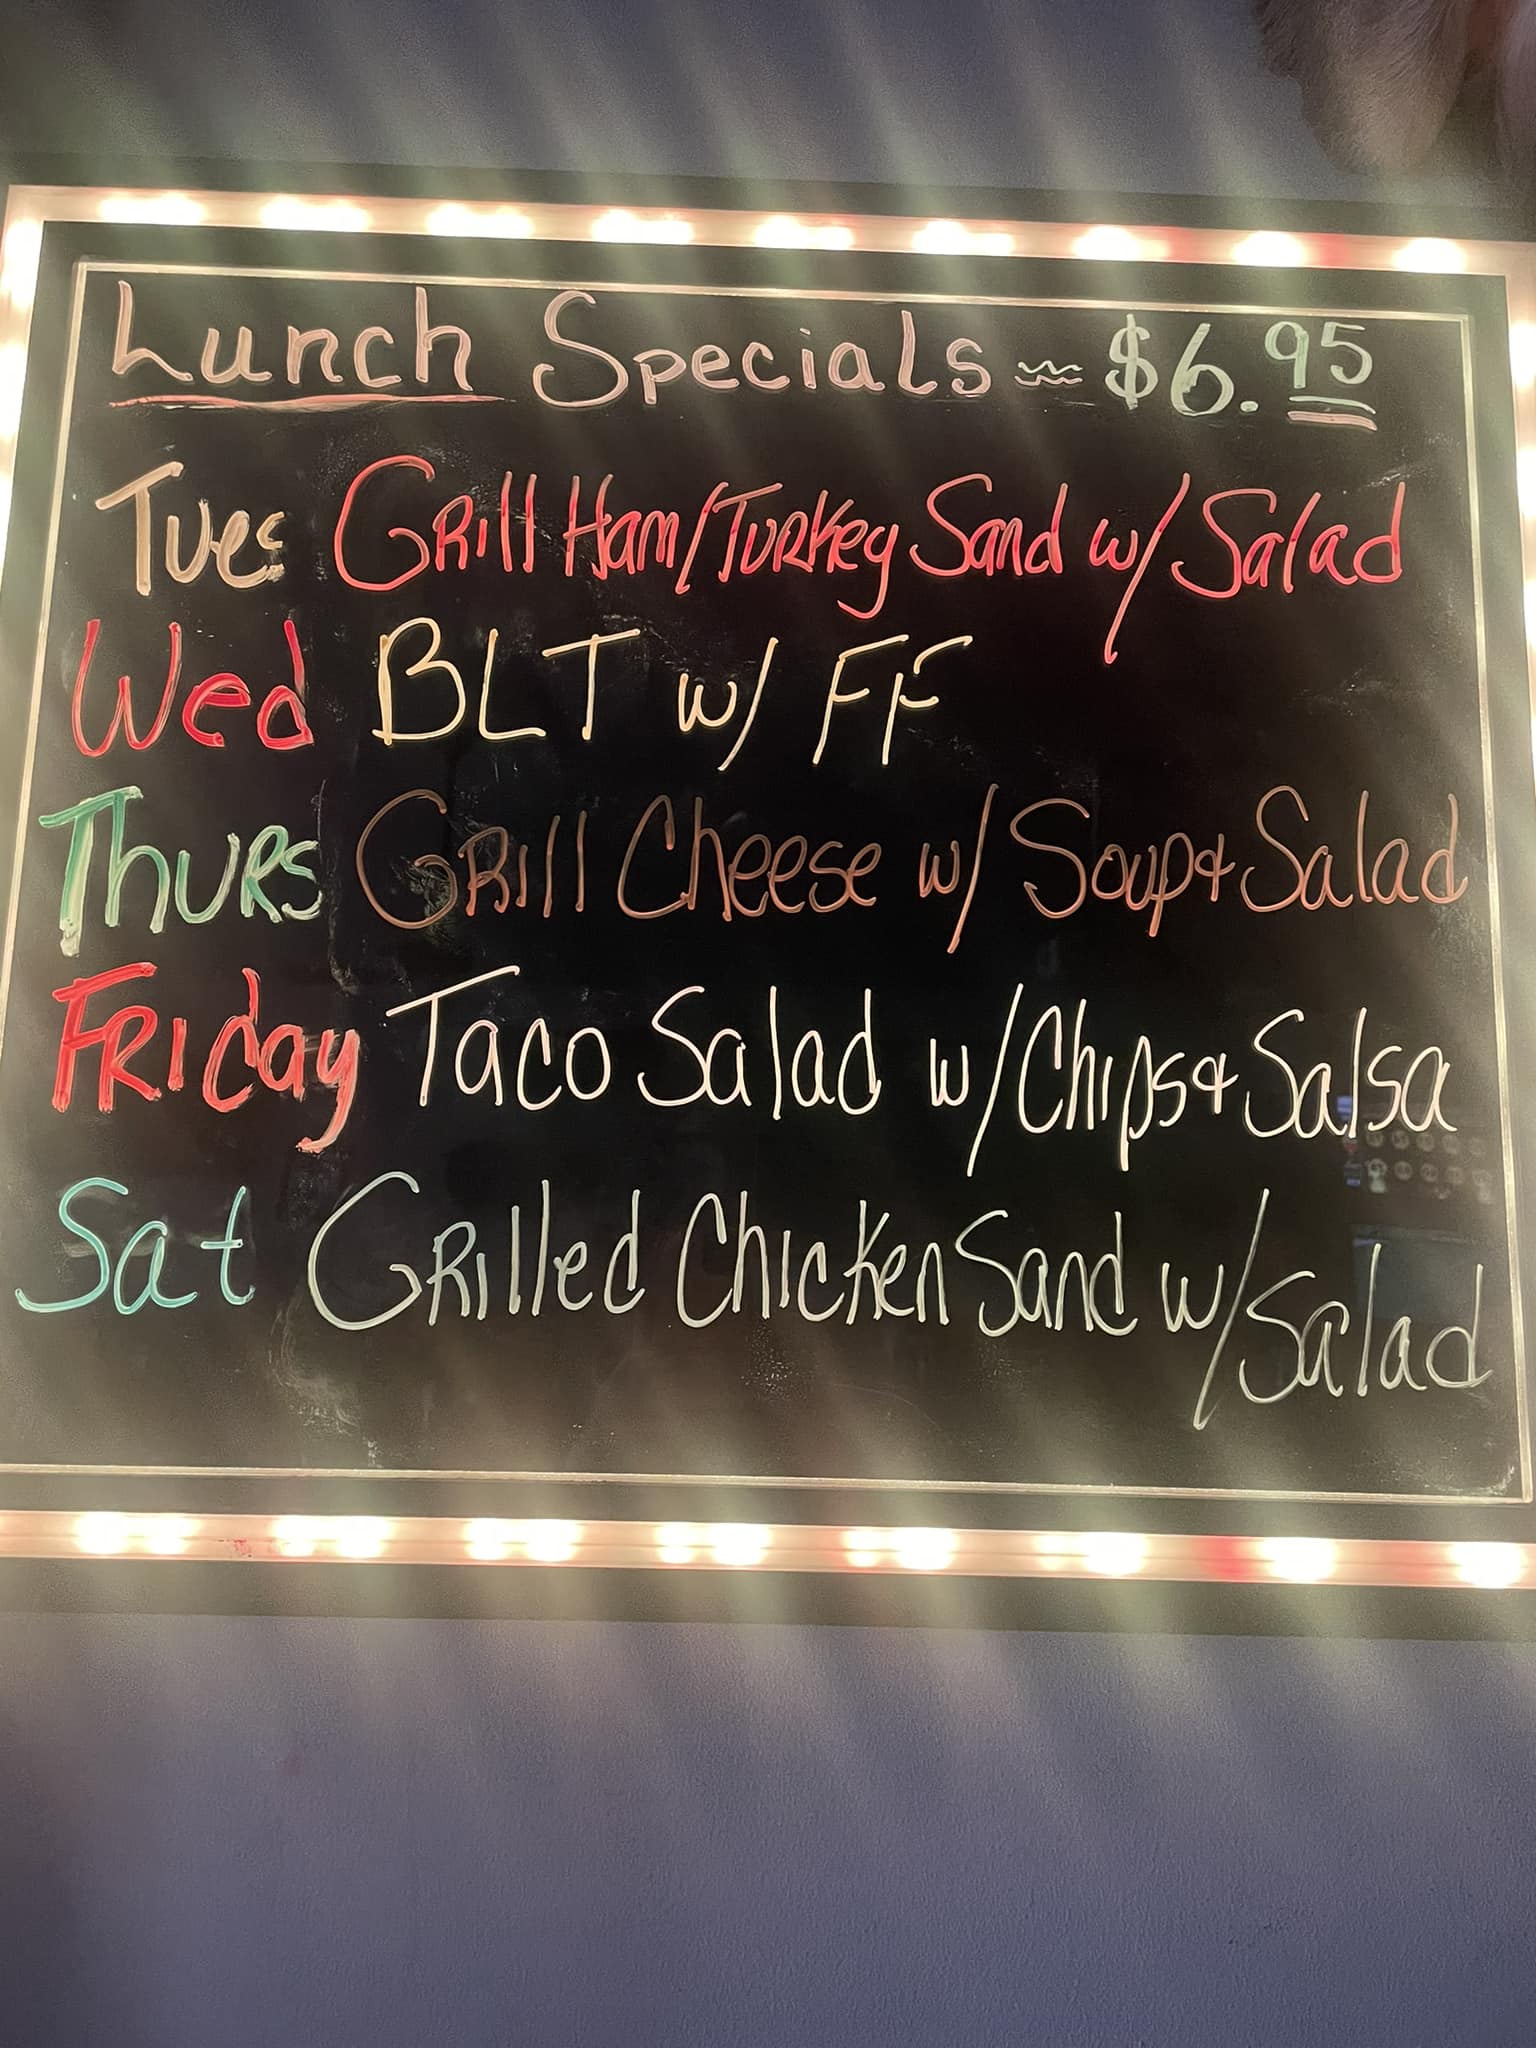 Lunch Specials ~ $6.95
Tues Grill Ham/Turkey Sand w/ Salad
Wed BLT w/ FF
Thurs Grill Cheese w/ Soup & Salad
Friday Taco Salad w/ Chips & Salsa
Sat Grilled Chicken Sand w/ Salad